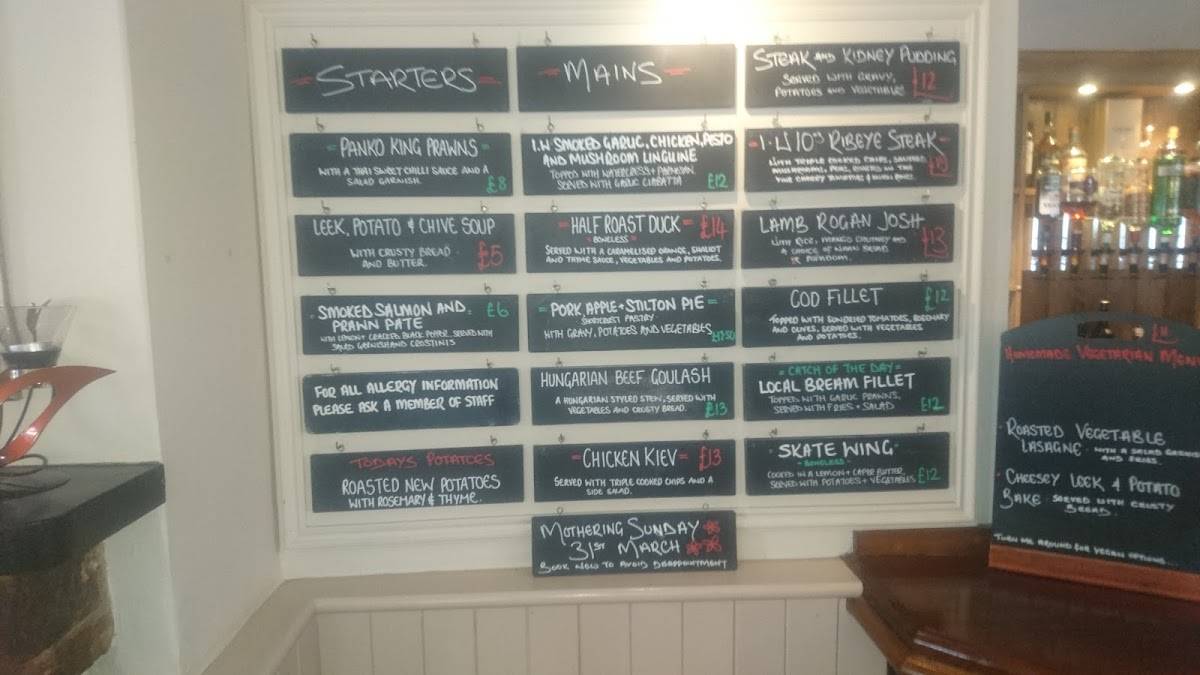 STARTERS
PANKO KING PRAWNS
WITH A THAI SWEET CHILLI SAUCE AND A
SALAD GARNISH.
£8
LEEK, POTATO & CHIVE SOUP
WITH CRUSTY BREAD
AND BUTTER.
£5
SMOKED SALMON AND
PRAWN PATE
£6
WITH LEMON + CRACKED BLACK PEPPER. SERVED WITH
SALAD GARNISH AND CROSTINIS
FOR ALL ALLERGY INFORMATION
PLEASE ASK A MEMBER OF STAFF
TODAYS POTATOES
ROASTED NEW POTATOES
WITH ROSEMARY & THYME.
MAINS
I.W SMOKED GARLIC, CHICKEN, PESTO
AND MUSHROOM LINGUINE
TOPPED WITH WATERCRESS + PARMESAN
SERVED WITH GARLIC CIABATTA
£12
HALF ROAST DUCK £14
BONELESS
SERVED WITH A CARAMELISED ORANGE, SHALLOT
AND THYME SAUCE, VEGETABLES AND POTATOES.
PORK, APPLE + STILTON PIE
SHORTCRUST PASTRY
WITH GRAVY, POTATOES AND VEGETABLES
£12.50
HUNGARIAN BEEF GOULASH
A HUNGARIAN STYLED STEW, SERVED WITH
VEGETABLES AND CRUSTY BREAD.
£13
CHICKEN KIEV £13
SERVED WITH TRIPLE COOKED CHIPS AND A
SIDE SALAD.
MOTHERING SUNDAY
31ST MARCH
BOOK NOW TO AVOID DISAPPOINTMENT
STEAK AND KIDNEY PUDDING
SERVED WITH GRAVY,
POTATOES AND VEGETABLES
£12
I.W 10oz RIBEYE STEAK
WITH TRIPLE COOKED CHIPS,
MUSHROOMS, PEAS,
LAMB ROGAN JOSH
WITH RICE, MANGO CHUTNEY AND
A CHOICE OF NAAN BREAD
OR POPADOM.
£13
COD FILLET £12
TOPPED WITH SUNDRIED TOMATOES, ROSEMARY
AND OLIVES. SERVED WITH VEGETABLES
AND POTATOES.
CATCH OF THE DAY
LOCAL BREAM FILLET
TOPPED WITH GARLIC PRAWNS,
SERVED WITH FRIES + SALAD
£12
SKATE WING
BONELESS
COOKED IN A LEMON + CAPER BUTTER.
SERVED WITH POTATOES + VEGETABLES
£12
£11
HOMEMADE VEGETARIAN MENU
ROASTED VEGETABLE
LASAGNE - WITH A SALAD GARNISH
AND FRIES.
CHEESEY LEEK & POTATO
BAKE SERVED WITH CRUSTY
BREAD.
TURN ME AROUND FOR VEGAN OPTIONS...